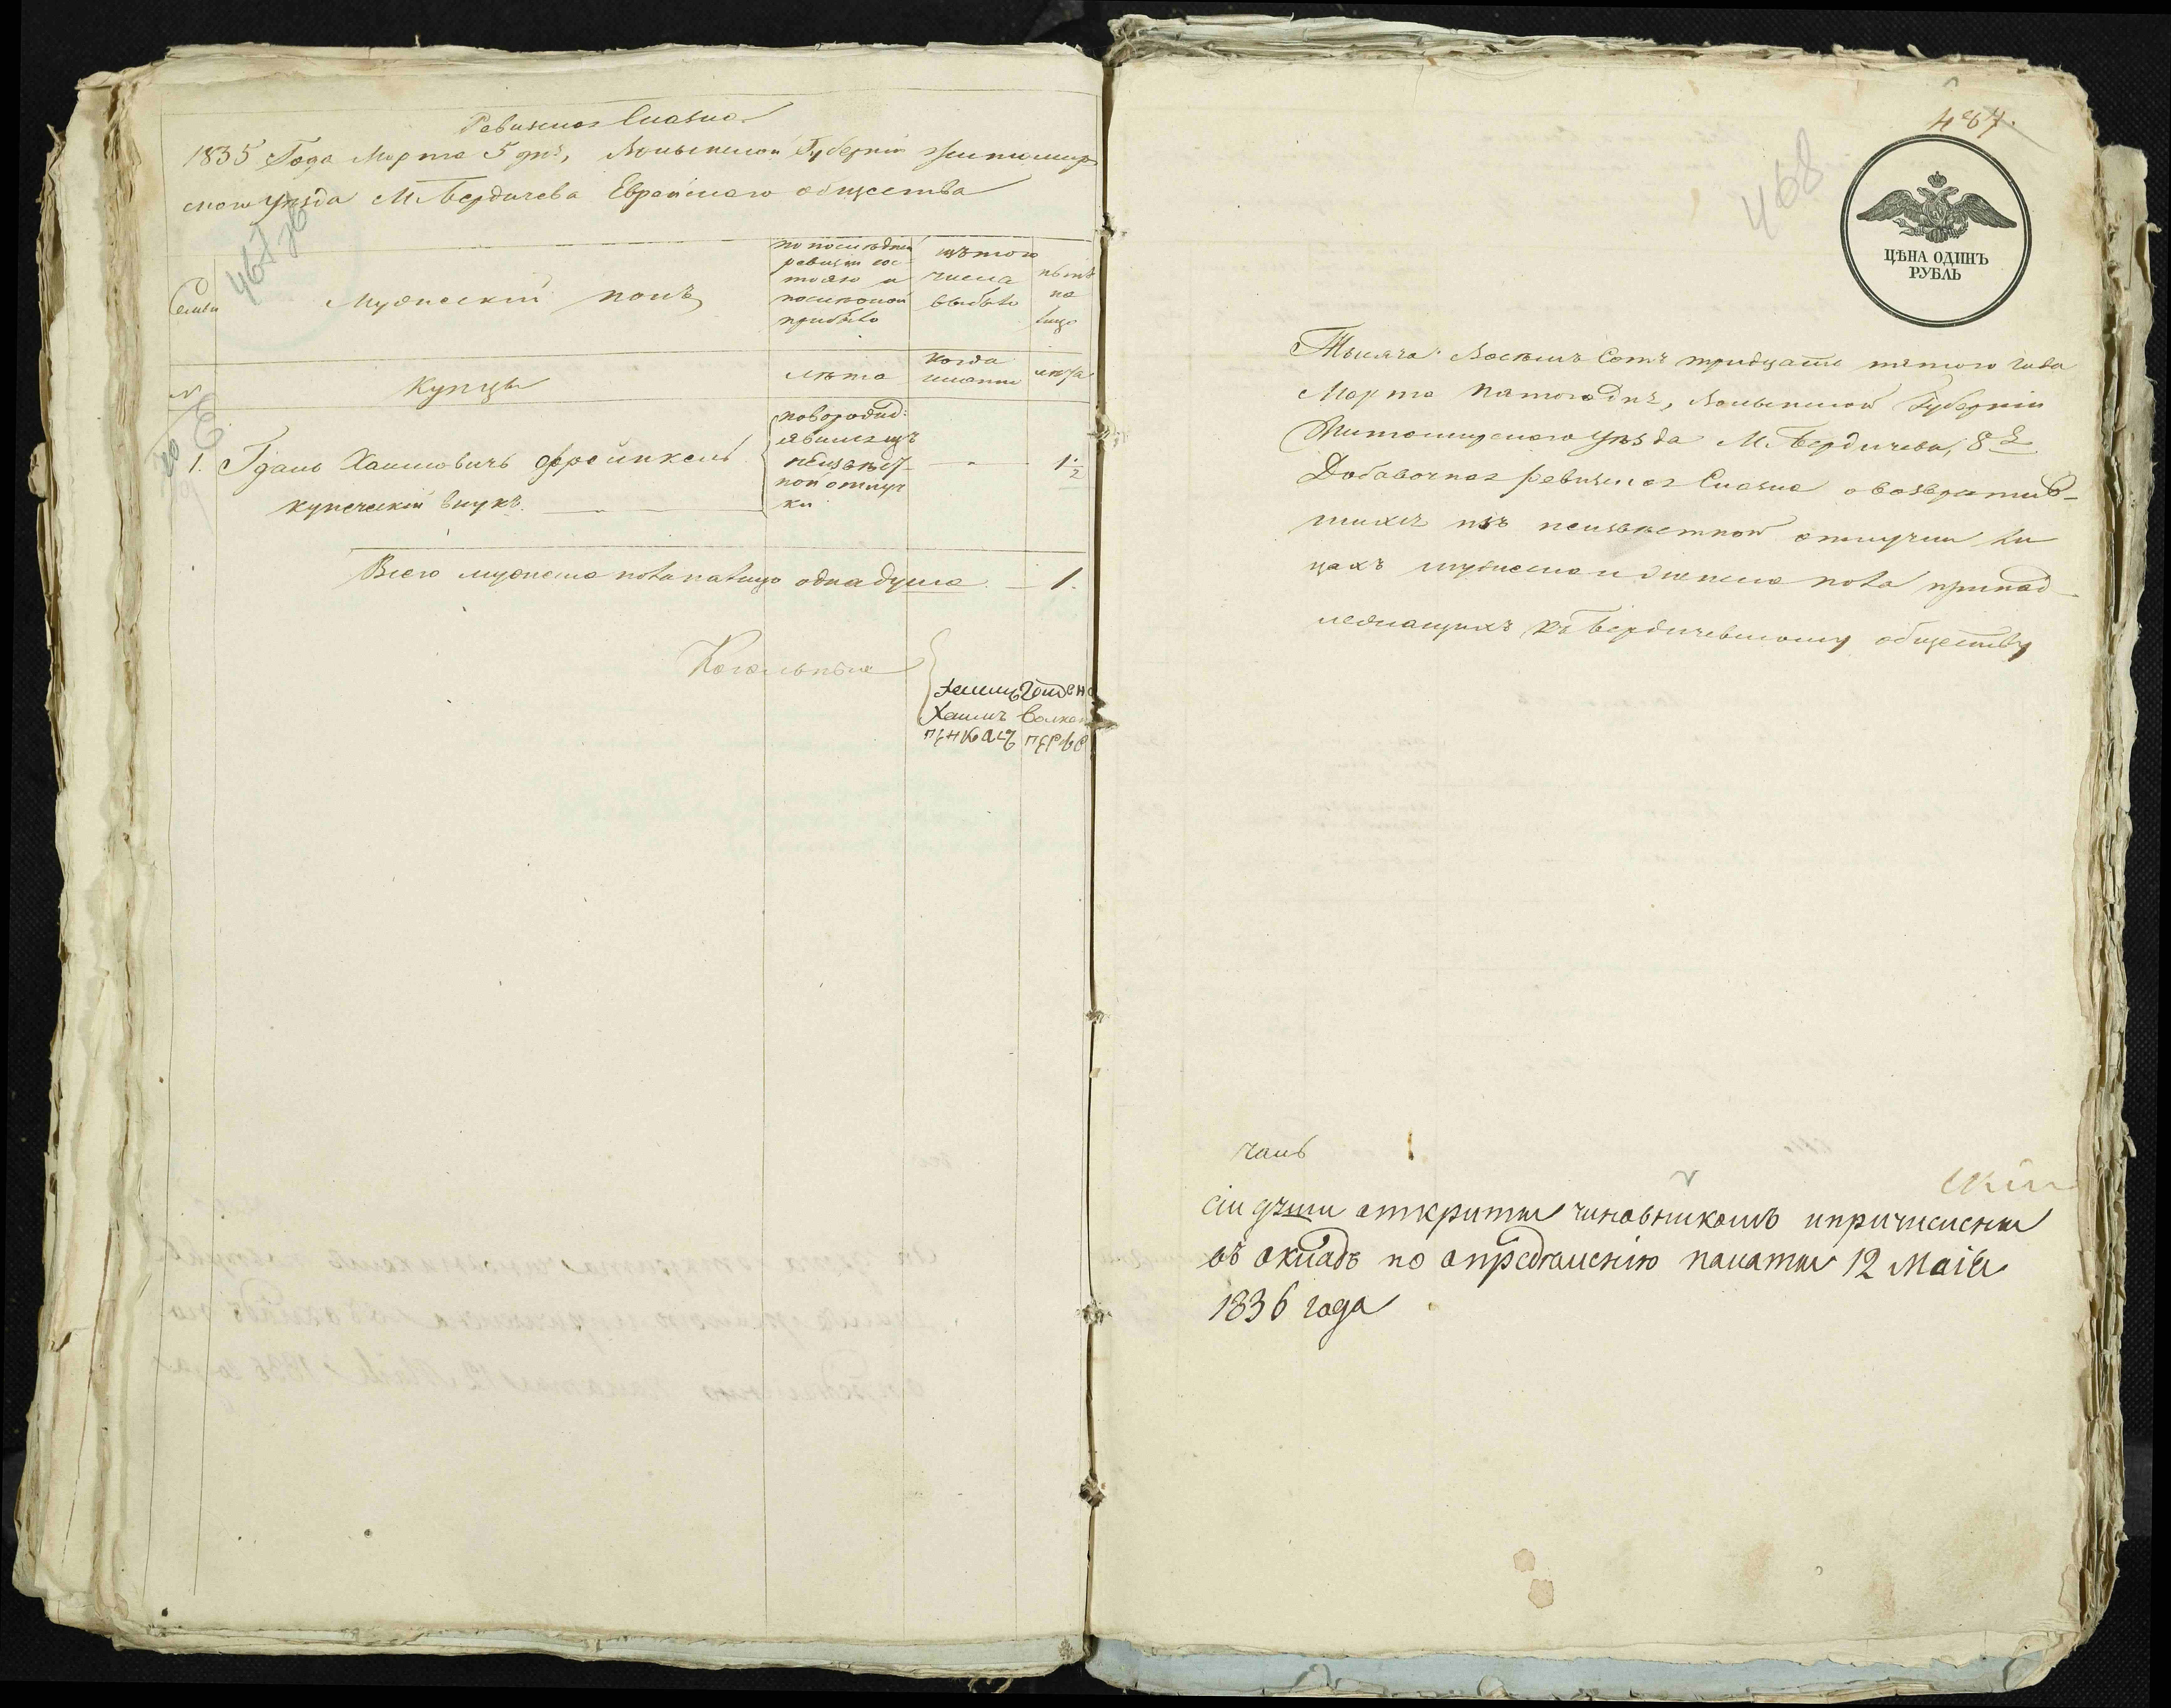 Ревизская Сказка
1835 Года Марта 5 дня, Волынской Губернiи Житомир
скаго Уѣзда М. Бердичева Еврейскаго общества
467
Семьи
Мужескiй полъ
по послѣдней
ревизiи сос-
тояло и
послѣ оной
прибыло
изъ того
числа
выбыло
нынѣ
на
лицо
№
Купцы
лѣта
когда
именно
лѣта
1. Хаимовичъ Френкель
купеческiй внукъ
новорожд:
явившiйся
неизвѣст
ной отлуч
ки
1/2
Всего мужеска пола налицо одна душа — 1.
Кагальные
Хаимъ
Хаимъ
487.
468
ЦѢНА ОДИНЪ
РУБЛЬ
Тысяча Восемь Сотъ тридцать пятого года
Марта пятого дня, Волынской Губернiи
Житомирскаго Уѣзда М. Бердичева, 8я
Добавочная ревизская Сказка о возвратив-
шихся изъ неизвѣстной отлучки ли
цахъ мужеска и женска пола принад
лежащихъ къ Бердичевскому обществу
скiй
сiи души открыты чиновникомъ и причислены
въ окладъ по опредѣленiю палаты 12 Маiя
1836 года